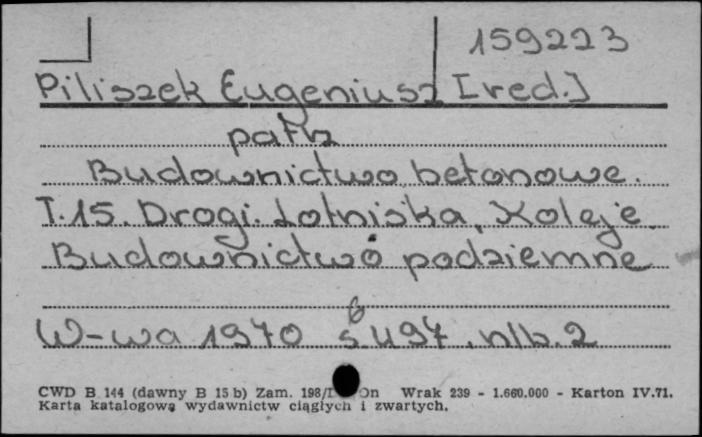 159223
Piliszek Eugeniusz [red.]
patrz
Budownictwo betonowe.
T.15. Drogi. Lotniska, Koleje
Budownictwo podziemne
W-wa 1970 s 497, nlb. 2
CWD B 144 (dawny B 15 b) Zam. 198/ On Wrak 239 - 1.660.000 - Karton IV.71.
Karta katalogowa wydawnictw ciągłych i zwartych.